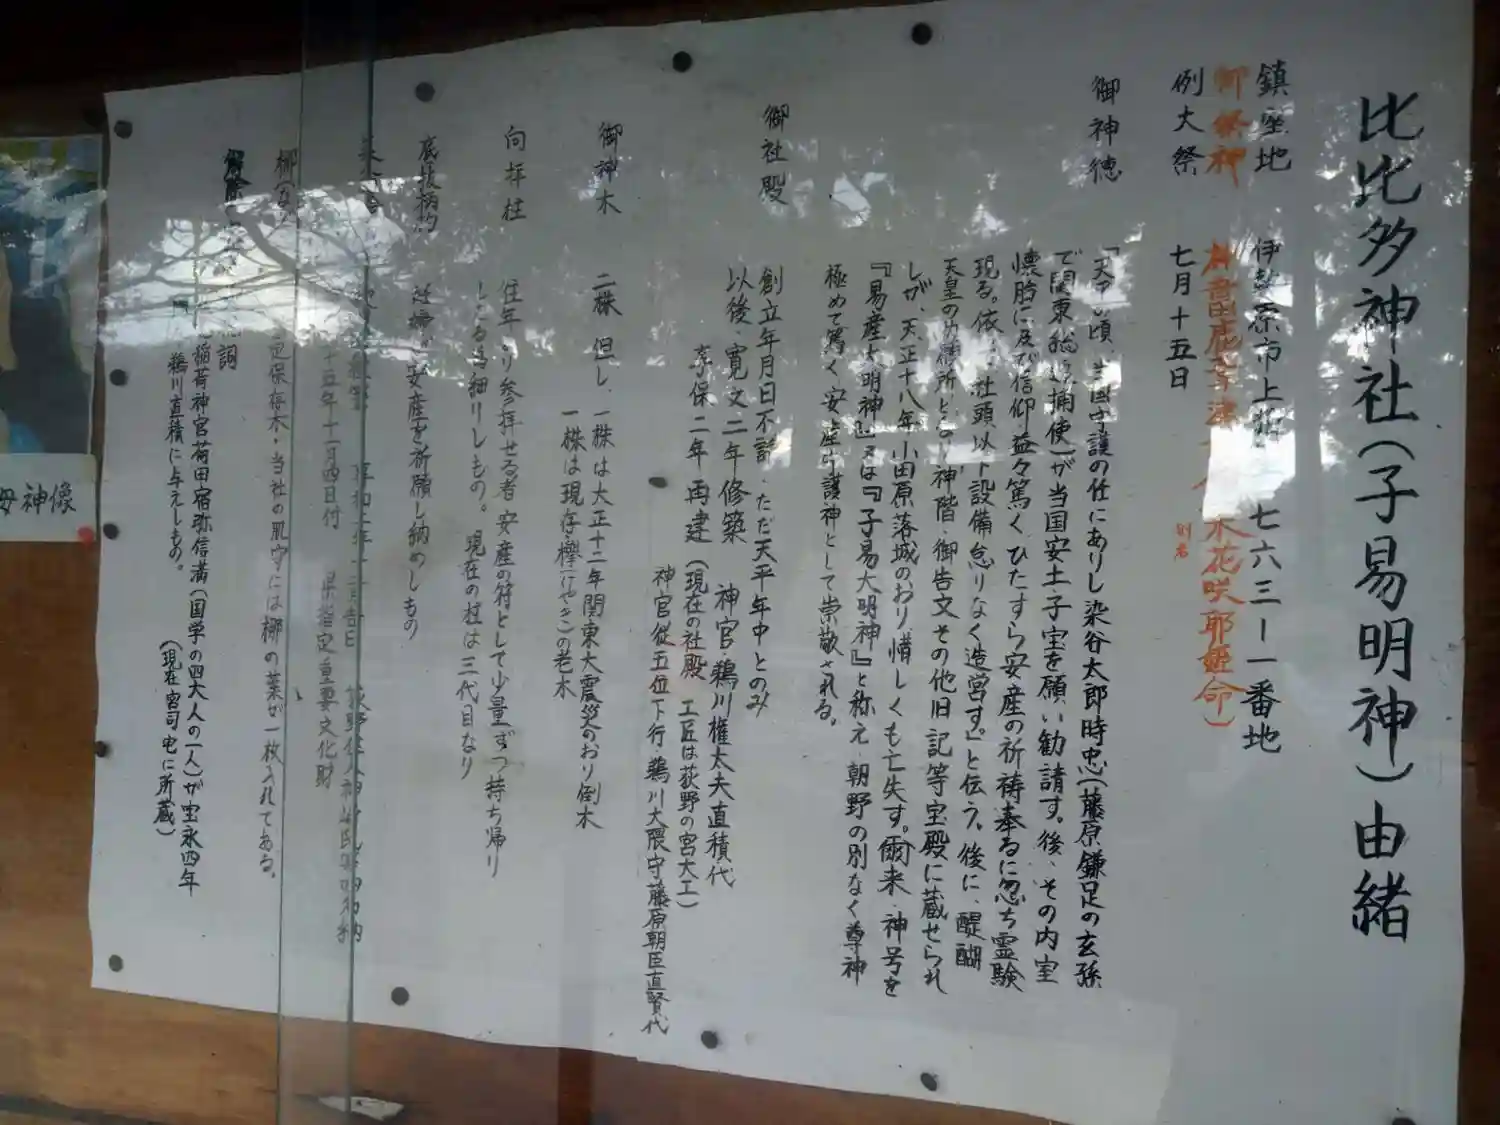 比比多神社(子易明神)由緒
鎮座地 伊勢原市上粕 七六三ー一番地
御祭神 神吾田鹿葦津 木花咲耶姫命)
別名
例大祭 七月十五日
御神徳 『天平の頃、当国守護の任にありし染谷太郎時忠(藤原鎌足の玄孫
で関東総 捕使)が当国安土・子宝を願い勧請す。後、その内室
懐胎に及び信仰益々篤く、ひたすら安産の祈祷奉るに忽ち霊験
現る。依 社頭以下設備怠りなく造営す。』と伝う。後に、醍醐
天皇の 所と 神階・御告文その他旧記等宝殿に蔵せられ
しが、天正十八年小田原落城のおり、惜しくも亡失す。爾来、神号を
『易産大明神』又は『子易大明神』と称え、朝野の別なく尊神
極めて篤く、安産守護神として崇敬される。
御社殿 創立年月日不詳、ただ天平年中とのみ
以後、寛文二年修築 神官 鵜川権太夫直積代
享保二年再建(現在の社殿 工匠は荻野の宮大工)
神官従五位下行 鵜川大隈守藤原朝臣直賢代
御神木 二株 但し、一株は大正十二年関東大震災のおり倒木
一株は現存・欅(けやき)の老木
向拝柱 往年より参拝せる者、安産の符として少量ずつ持ち帰り
しによる為細りしもの。 現在の柱は三代目なり
底抜柄杓 妊婦が安産を祈願し納めしもの
十五年十一月四日付 県指定重要文化財
梛(なぎ) 保存木・当社の肌守には梛の葉が一枚入れてある。
詞
稲荷神官荷田宿弥信満(国学の四大人の一人)が宝永四年
鵜川直積に与えしもの。 (現在宮司宅に所蔵)
母神像